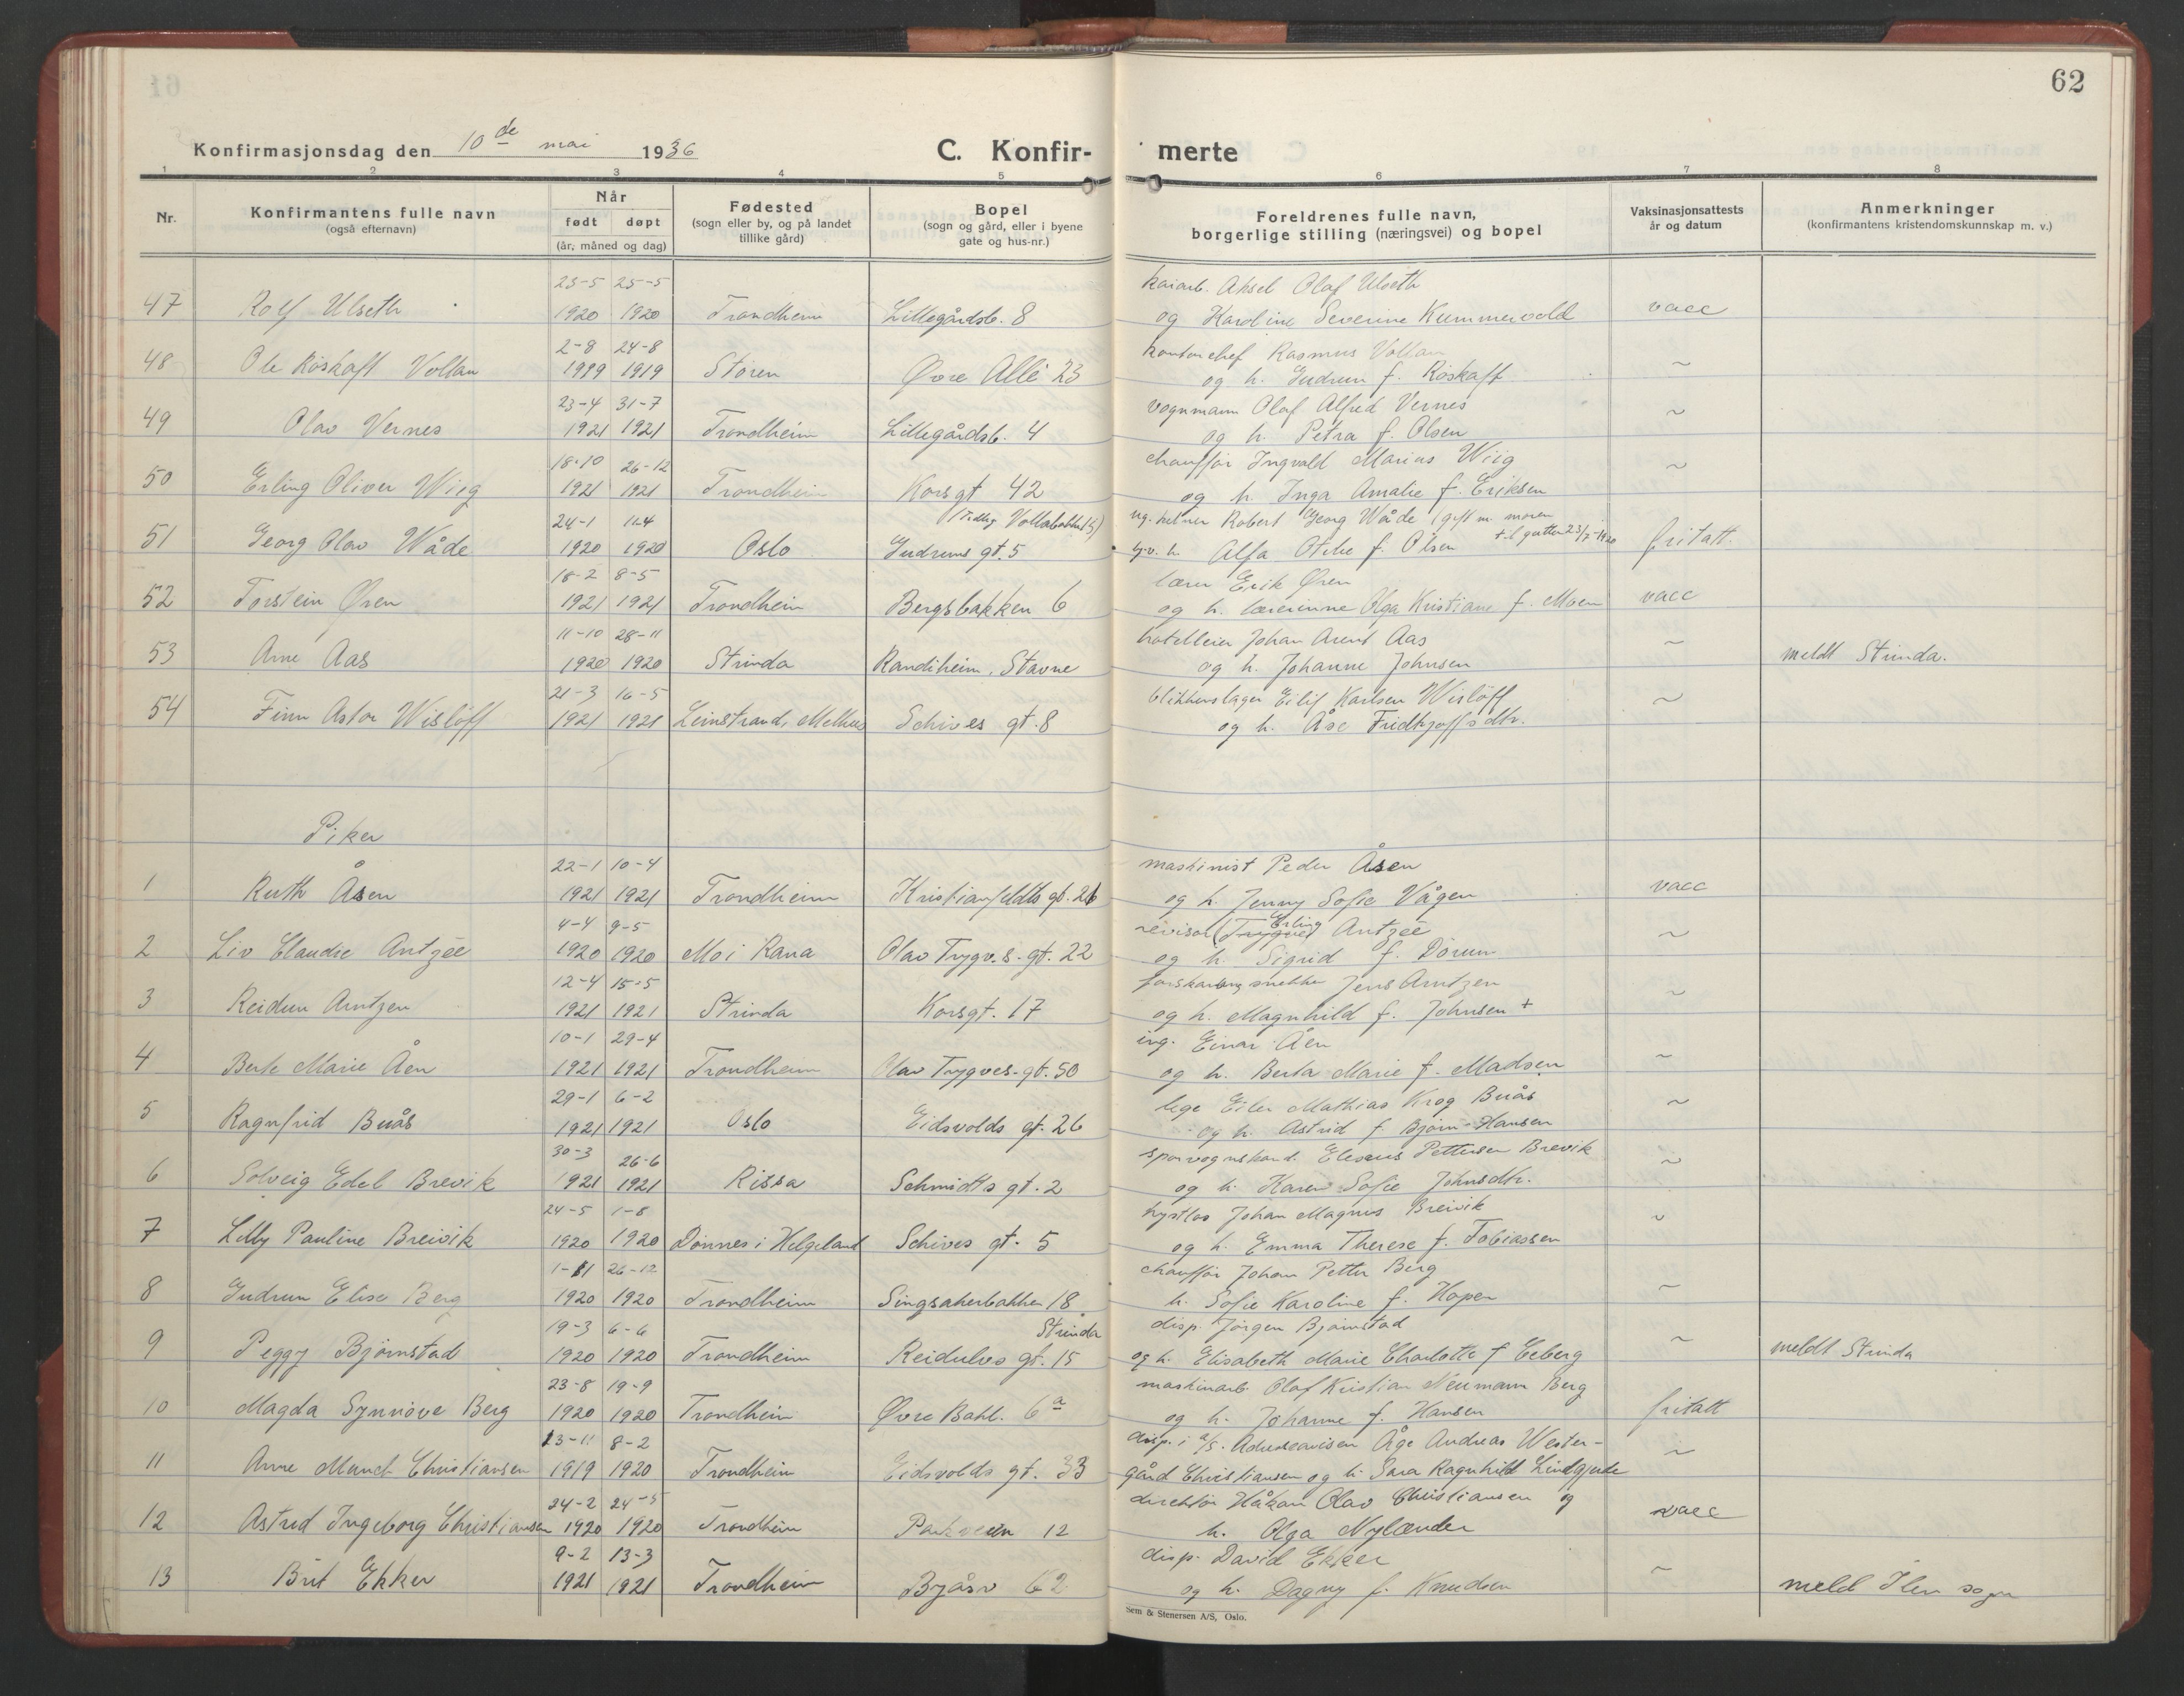 62
Konfirmasjonsdag den 10de mai 1936
C. Konfir- merte
1 2 3 4 5 6 7 8
Nr.
Konfirmantens fulle navn
(også efternavn)
Når
født døpt
(år, måned og dag)
Fødested
(sogn eller by, og på landet
tillike gård)
Bopel
(sogn og gård, eller i byene
gate og hus-nr.)
Foreldrenes fulle navn,
borgerlige stilling (næringsvei) og bopel
Vaksinasjonsattests
år og datum
Anmerkninger
(konfirmantens kristendomskunnskap m. v.)
23-5 25-5 kaiarb. Aksel Olaf Ulseth
47 Rolf Ulseth 1920 1920 Trondheim Lillegårdsb. 8 og Karoline Severine Kummervold vacc
2-8 24-8 kontorchef Rasmus Vollan
48 Ole Röskaft Vollan 1919 1919 Støren Øvre Allé 23 og h. Gudrun f. Röskaft ~
23-4 31-7 vognmann Olaf Alfred Vernes
49 Olav Vernes 1921 1921 Trondheim Lillegårdsb. 4 og h. Petra f. Olsen ~
18-10 26-12 chauffør Ingvald Marius Wiig
50 Erling Oliver Wiig 1921 1921 Trondheim Korsgt 42 og h. Inga Amalie f. Eriksen ~
24-1 11-4 Robert Georg Wåde (gift m. moren
51 Georg Olav Wåde 1920 1920 Oslo Gudruns gt. 5 h. Alfa f. Olsen fritatt.
18-2 8-5 lærer Erik Øren
52 Torstein Øren 1921 1921 Trondheim Bergsbakken 6 og h. lærerinne Olga Kristiane f. Moen vacc
11-10 28-11 hotelleier Johan Arent Aas
53 Arne Aas 1920 1920 Strinda Randiheim, Stavne og h. Johanne Johnsen ~ meldt Strinda.
21-3 16-5 blikkenslager Eilif Karlsen Wislöff
54 Finn Astor Wislöff 1921 1921 Leinstrand, Melhus Schives gt. 8 og h. Åse Fridtjoffsdtr. ~
Piker
22-1 10-4 maskinist Peder Åsen
1 Ruth Åsen 1921 1921 Trondheim Kristianfeldts gt. 26 og h. Jenny Sofie Vågen vacc
4-4 9-5 revisor (Trygve) Erling Antzée
2 Liv Claudie Antzée 1920 1920 Mo i Rana Olav Trygv.s. gt. 22 og h. Sigrid f. Dørum ~
12-4 15-5 snekker Jens Arntzen
3 Reidun Arntzen 1921 1921 Strinda Korsgt. 17 og h. Magnhild f. Johnsen + ~
10-1 29-4 ing. Einar Åen
4 Berte Marie Åen 1921 1921 Trondheim Olav Trygves. gt. 50 og h. Berta Marie f. Madsen ~
29-1 6-2 lege Eiler Mathias Krog Buås
5 Ragnfrid Buås 1921 1921 Oslo Eidsvolds gt. 26 og h. Astrid f. Bjørn-Hansen ~
30-3 26-6 sporvognskond. Eleseus Pettersen Brevik
6 Solveig Edel Brevik 1921 1921 Rissa Schmidts gt. 2 og h. Karen Sofie Johnsdtr. ~
24-5 1-8 kystlos Johan Magnus Breivik
7 Lilly Pauline Breivik 1920 1920 Dønnes i Helgeland Schives gt. 5 og h. Emma Therese f. Tobiassen ~
1-11 26-12 chauffør Johan Petter Berg
8 Gudrun Elise Berg 1920 1920 Trondheim Singsakerbakken 18 h. Sofie Karoline f. Hopen ~
19-3 6-6 Strinda disp. Jørgen Bjørnstad
9 Peggy Björnstad 1920 1920 Trondheim Reidulvs gt. 15 og h. Elisabeth Marie Charlotte f Eeberg ~ meldt Strinda
23-8 19-9 maskinarb. Olaf Kristian Neumann Berg
10 Magda Synnøve Berg 1920 1920 Trondheim Øvre Bakl. 6a og h. Johanne f. Hansen fritatt
13-11 8-2 disp. i a/s. Adresseavisen Åge Andreas Wester-
11 Anne Munch Christiansen 1919 1920 Trondheim Eidsvolds gt. 33 gård Christiansen og h. Sara Ragnhild Lindgjerde ~
24-2 24-5 direktør Håkon Olav Christiansen og
12 Astrid Ingeborg Christiansen 1920 1920 Trondheim Parkveien 12 h. Olga Nylænder vacc
9-2 13-3 disp. David Ekker
13 Brit Ekker 1921 1921 Trondheim Byåsv 62 og h. Dagny f. Knudsen ~ meld Ilen sogn
Sem & Stenersen A/S, Oslo.